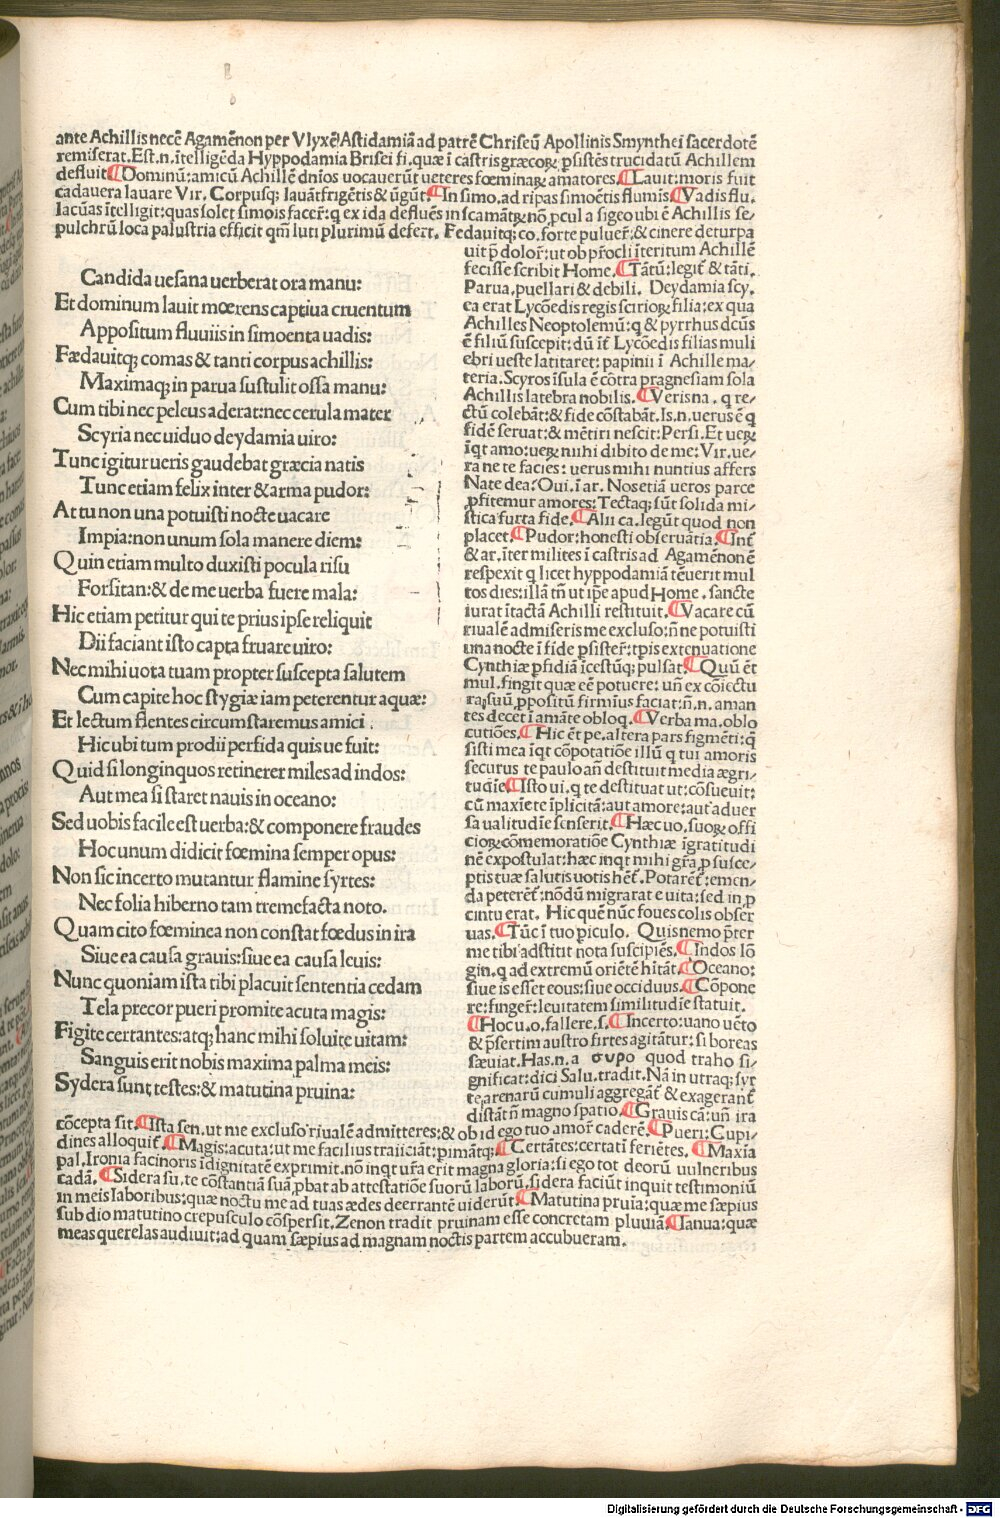 ante Achillis necē Agamēnon per Vlyxē Astidamiā ad patrē Chriseū Apollinis Smynthei sacerdotē
remiserat. Est.n. ītelligēda Hyppodamia Brisei fi. quæ ī castris græcoꝝ p̄sistēs trucidatū Achillem
defluit ¶Dominū: amicū Achillē dn̄ios uocauerūt ueteres fœminaꝝ amatores. ¶Lauit: moris fuit
cadauera lauare Vir. Corpusq; lauāt frigētis & ūgūt. ¶In simo. ad ripas simoētis flumīs. ¶Vadis flu.
lacūas ītelligit: quas solet simois facer̄: q ex ida defluēs in scamātꝝ nō pcul a sigeo ubi ē Achillis se/
pulchrū loca palustria efficit qm̄ luti plurimū defert. Fedauitq; co. forte puluer̄: & cinere deturpa
uit p̄ dolor̄: ut ob p̄rocli īteritum Achillē
fecisse scribit Home. ¶Tātū: legit̄ & tāti.
Parua. puellari & debili. Deydamia scy.
ea erat Lycōedis regis scirioꝝ filia: ex qua
Achilles Neoptolemū: q & pyrrhus dc̄us
ē filiū suscepit: dū īt̄ Lycōedis filias muli
ebri ueste latitaret: papinii ī Achille ma/
teria. Scyros īsula ē cōtra pragnesiam sola
Achillis latebra nobilis. ¶Veris na. q re/
ctū colebāt: & fide cōstabāt. Is.n. uerus ē q
fidē seruat: & mētiri nescit: Persi. Et ueꝝ
īqt amo: ueꝝ mihi dibito de me: Vir. ue/
ra ne te facies: uerus mihi nuntius affers
Nate dea? Oui. ī ar. Nos etiā ueros parce
p̄fitemur amores: Tectaq; sūt solida mi/
stica furta fide. ¶Alii ca. legūt quod non
placet. ¶Pudor: honesti obseruātia. ¶Int̄
& ar. īter milites ī castris ad Agamēnonē
respexit q licet hyppodamiā tēuerit mul
tos dies: illā tn̄ ut ip̄e apud Home. sancte
iurat ītactā Achilli restituit. ¶Vacare cū
riualē admiseris me excluso: n̄ ne potuisti
una nocte ī fide p̄sister̄: tpis extenuatione
Cynthiæ p̄fidiā īcestūq; pulsat. ¶Quū ēt
mul. fingit quæ eē potuere: un̄ ex cōiectu
ra; suū; p̄positū firmius faciat: n̄.n. aman
tes decet ī amāte obloq. ¶Verba ma. oblo
cutiōes. ¶Hic ēt pe. altera pars figmēti: q
sisti mea īqt cōpotatiōe illū q tui amoris
securus te paulo an̄ destituit media ægri/
tudīe ¶Isto ui. q te destituat ut: cōsueuit:
cū maxīe te īplicitā: aut amore: aut aduer
sa ualitudīe senserit. ¶Hæc uo. suoꝝ offi
cioꝝ cōmemoratiōe Cynthiæ īgratitudi
nē expostulat: hæc inqt mihi gr̄a p susce/
ptis tuæ salutis uotis hēt̄. Potaret̄: emen/
da peteret̄: nōdū migrarat e uita: sed in p
cintu erat. Hic quē nūc foues colis obser
uas. ¶Tūc ī tuo p̄iculo. Quis nemo p̄ter
me tibi adstitit nota suscipiēs. ¶Indos lō
gin. q ad extremū oriētē hitāt. ¶Oceano:
siue is esset eous: siue occiduus. ¶Cōpone
re: finger̄: leuitatem similitudīe statuit.
¶Hoc u. o. fallere. s. ¶Incerto: uano uēto
& p̄sertim austro sirtes agitātur: si boreas
sæuiat. Has.n. a συρο quod traho si/
gnificat: dici Salu. tradit. Nā in utraq; syr
te, arenarū cumuli aggregāt̄ & exagerant̄
distāt n̄ magno spatio. ¶Grauis cā: un̄ ira
Candida uesana uerberat ora manu:
Et dominum lauit mœrens captiua cruentum
Appositum fluuiis in simoenta uadis:
Fædauitq; comas & tanti corpus achillis:
Maximaq; in parua sustulit ossa manu:
Cum tibi nec peleus aderat: nec cerula mater
Scyria nec uiduo deydamia uiro:
Tunc igitur ueris gaudebat græcia natis
Tunc etiam felix inter & arma pudor:
At tu non una potuisti nocte uacare
Impia: non unum sola manere diem:
Quin etiam multo duxisti pocula risu
Forsitan: & de me uerba fuere mala:
Hic etiam petitur qui te prius ipse reliquit
Dii faciant isto capta fruare uiro:
Nec mihi uota tuam propter suscepta salutem
Cum capite hoc stygiæ iam peterentur aquæ:
Et lectum flentes circum staremus amici.
Hic ubi tum prodii perfida quis ue fuit:
Quid si longinquos retinerer miles ad indos:
Aut mea si staret nauis in oceano:
Sed uobis facile est uerba: & componere fraudes
Hoc unum didicit fœmina semper opus:
Non sic incerto mutantur flamine syrtes:
Nec folia hiberno tam tremefacta noto.
Quam cito fœminea non constat fœdus in ira
Siue ea causa grauis: siue ea causa leuis:
Nunc quoniam ista tibi placuit sententia cedam
Tela precor pueri promite acuta magis:
Figite certantes: atq; hanc mihi soluite uitam:
Sanguis erit nobis maxima palma meis:
Sydera sunt testes: & matutina pruina:
cōcepta sit. ¶Ista sen. ut me excluso riualē admitteres: & ob id ego tuo amor̄ caderē. ¶Pueri: Cupi/
dines alloquit̄. ¶Magis: acuta: ut me facilius traiiciāt: pimātq; ¶Certātes: certatī feriētes. ¶Maxīa
pal. Ironia facinoris īdignitatē exprimit. nō inqt ur̄a erit magna gloria: si ego tot deorū uulneribus
cadā. ¶Sidera su. te cōstantiā suā p̄bat ab attestatiōe suorū laborū, sidera faciūt inquit testimoniū
in meis laboribus: quæ noctu me ad tuas ædes deerrantē uiderūt. ¶Matutina pruīa: quæ me sæpius
sub dio matutino crepusculo cōspersit. Zenon tradit pruinam esse concretam pluuiā. ¶Ianua: quæ
meas querelas audiuit: ad quam sæpius ad magnam noctis partem accubueram.
Digitalisierung gefördert durch die Deutsche Forschungsgemeinschaft - DFG